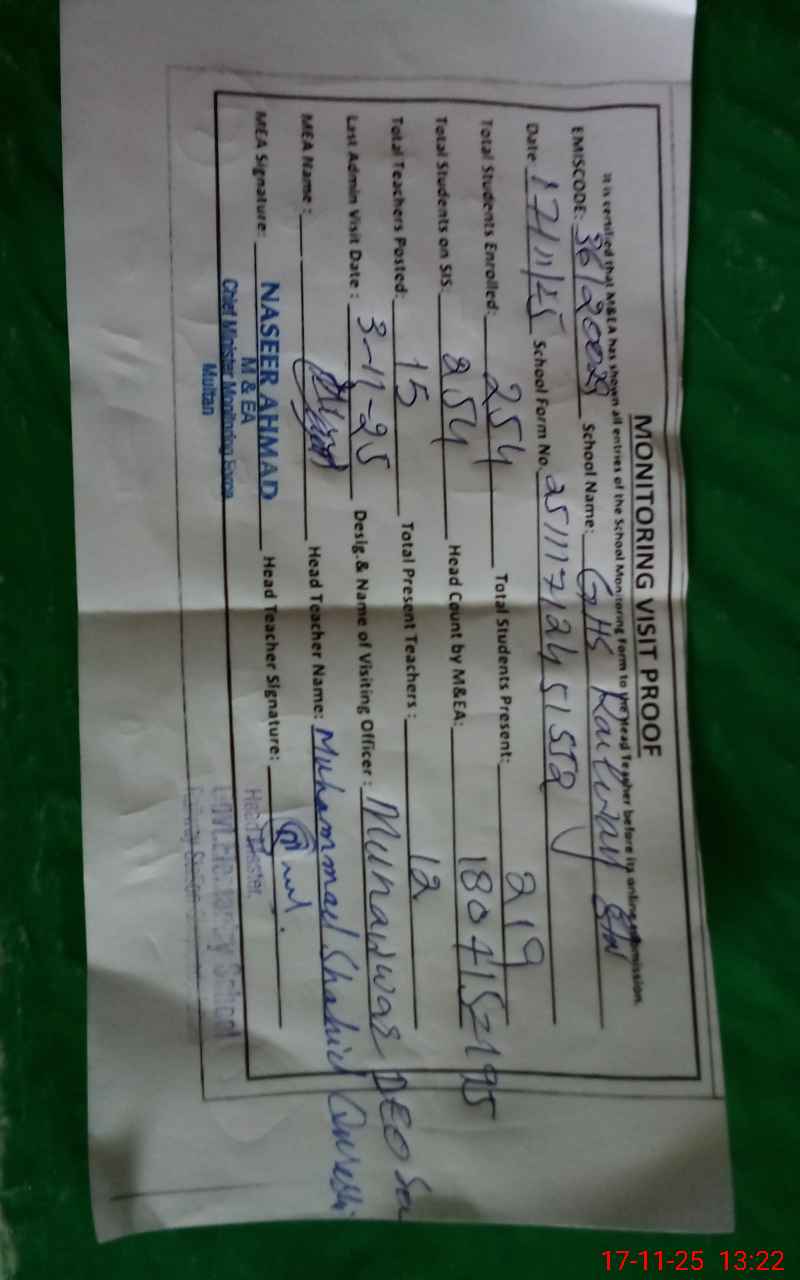 MONITORING VISIT PROOF
It is certified that M&EA has shown all entries of the School Monitoring Form to the Head Teacher before its online submission.
EMISCODE: 36120029 School Name: GHS Railway STN
Date 17/11/25 School Form No.
Total Students Enrolled: 254 Total Students Present: 219
Total Students on SIS: 254 Head Count by M&EA: 180+15=195
Total Teachers Posted: 15 Total Present Teachers: 12
Last Admin Visit Date: 3-11-25 Desig.& Name of Visiting Officer: Munawwar DEO
MEA Name: Head Teacher Name: Muhammad Shahid Qureshi
MEA Signature: Head Teacher Signature:
NASEER AHMAD
M & EA
Chief Minister Monitoring Force
Multan
Head Master,
Govt. Elementary School
Railway Station
17-11-25 13:22